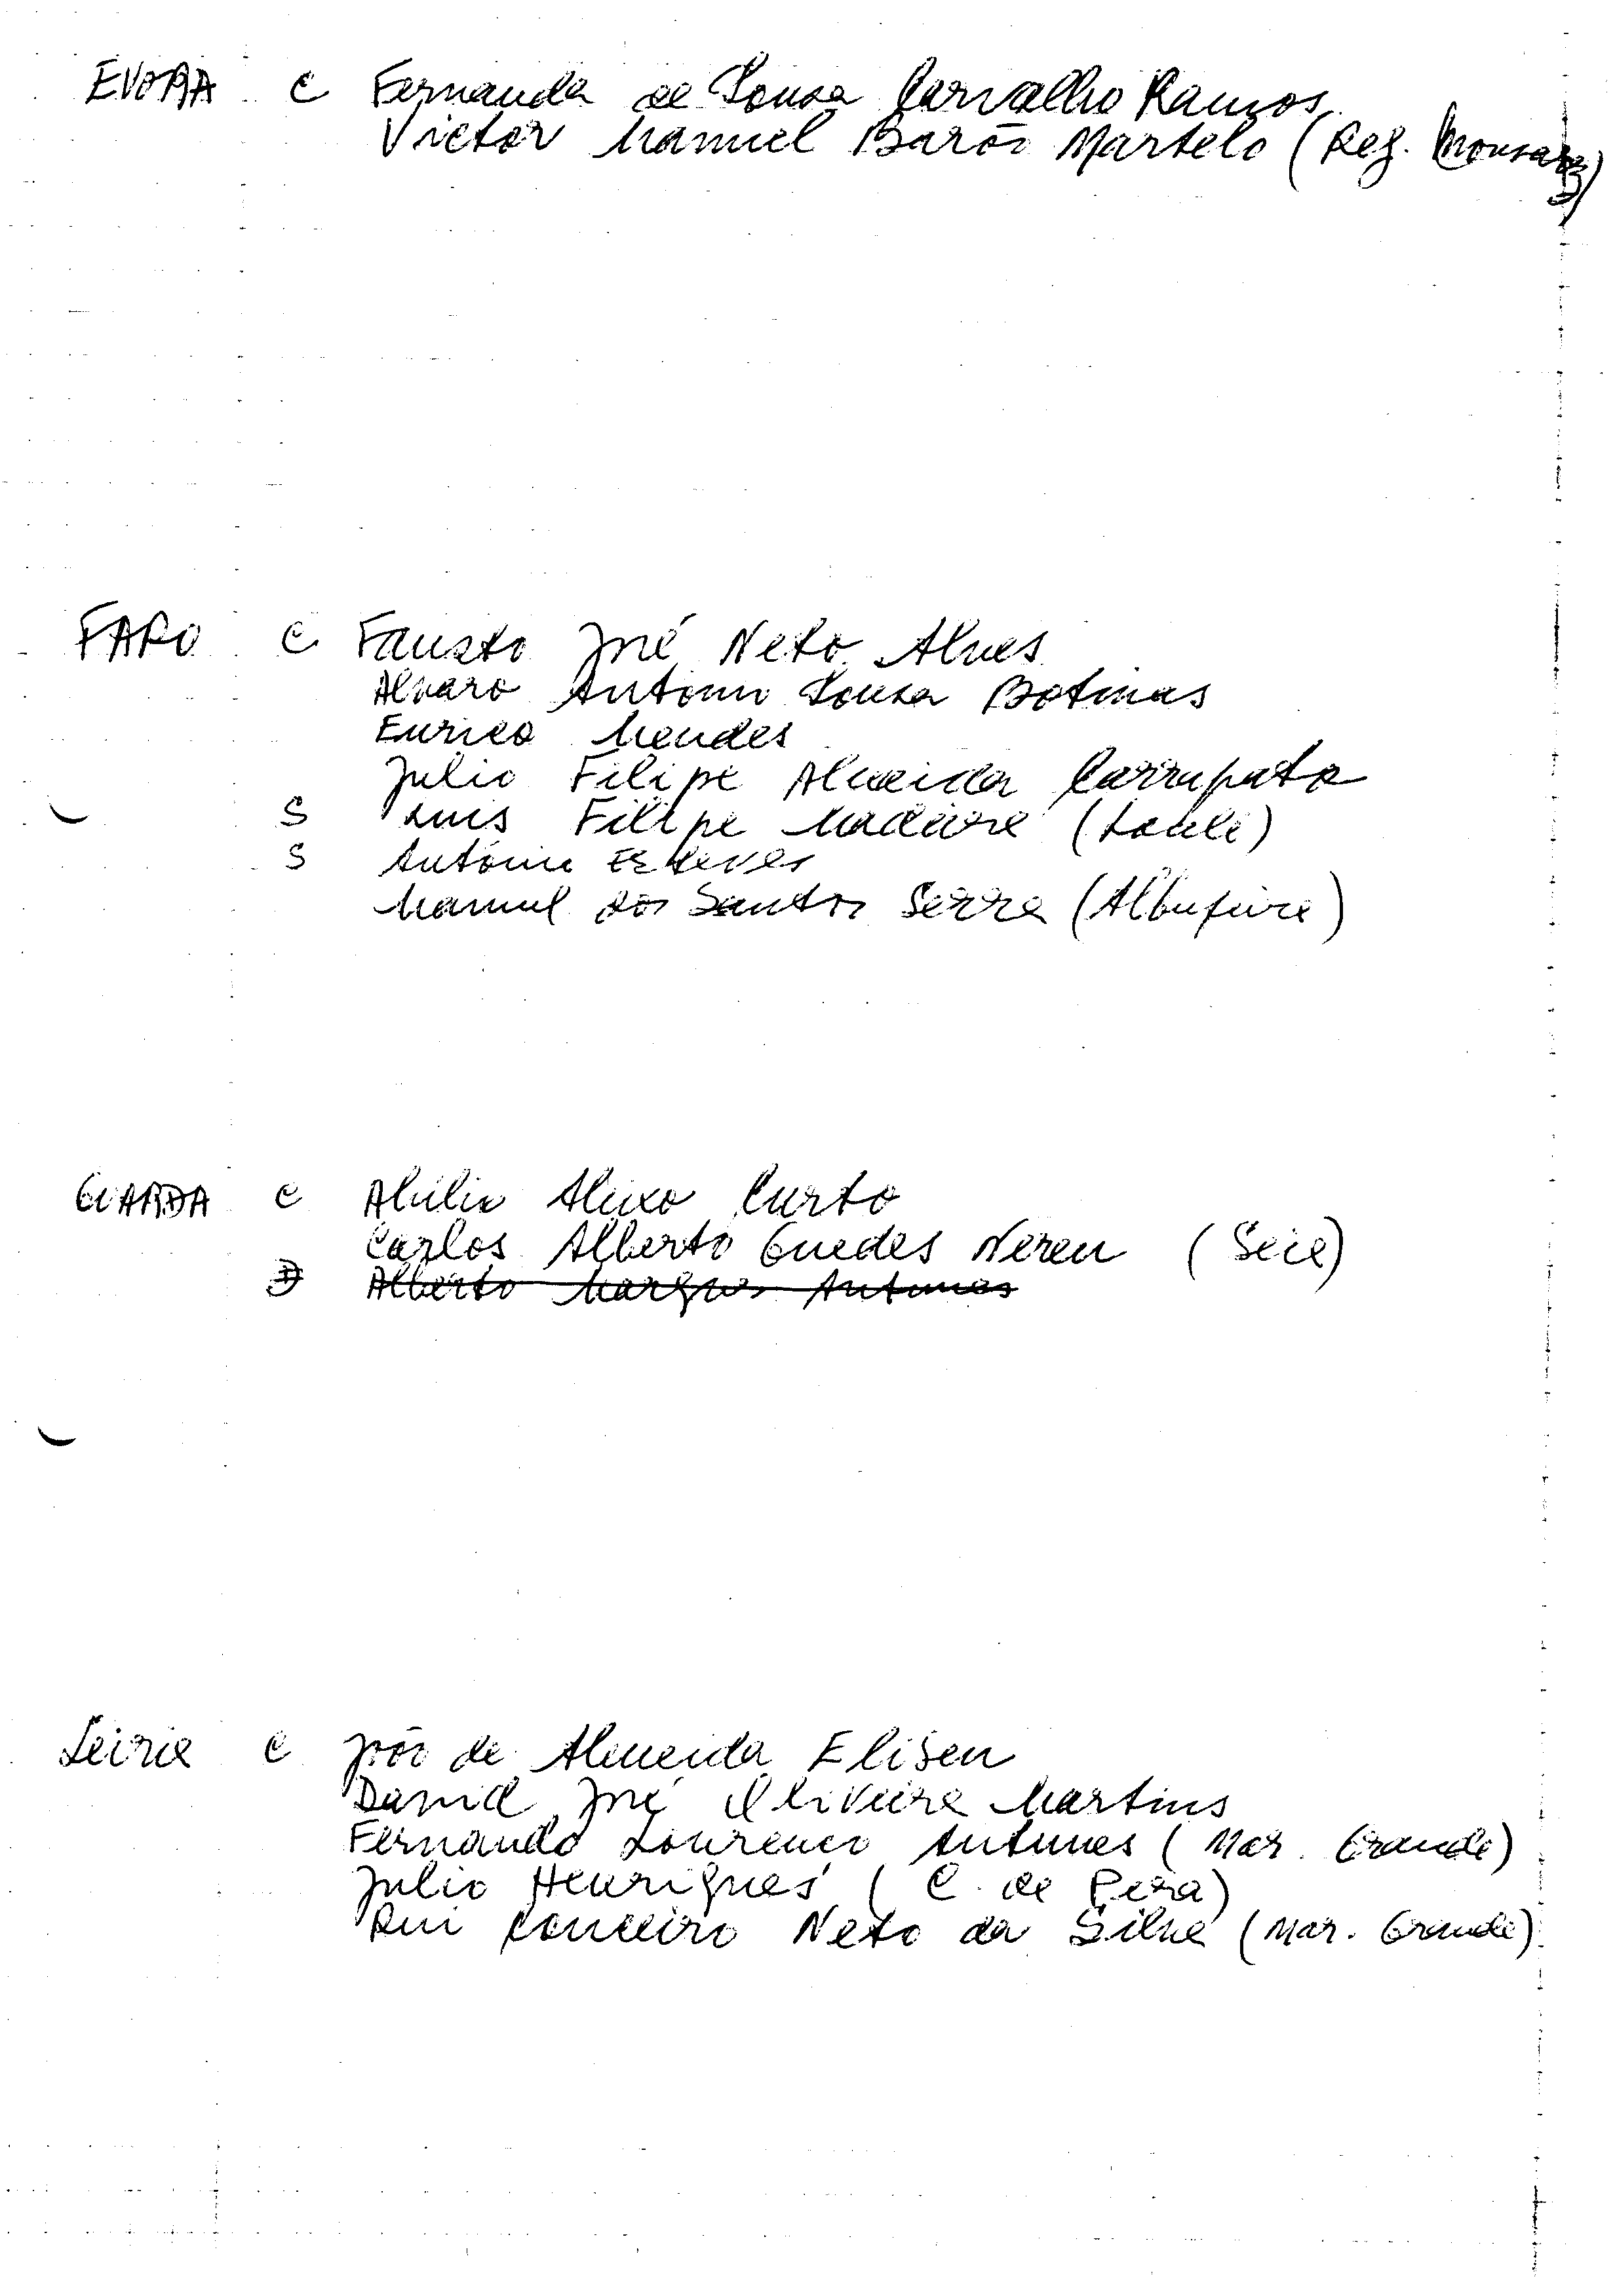 EVORA C Fernanda de Sousa Carvalho Ramos
Victor Manuel Barão Martelo (Reg. Monsaraz)
FARO C Fausto José Neto Alves
Alvaro Antonio Sousa Botinas
Eurico Mendes
Julio Filipe Almeida Carrapato
S Luis Filipe Madeira (Loulé)
S António Esteves
Manuel dos Santos Serra (Albufeira)
GUARDA C Abílio Aleixo Curto
Carlos Alberto Guedes Neren (Seia)
Alberto Marques Antunes
Leiria C João de Almeida Eliseu
David José Oliveira Martins
Fernando Lourenço Antunes (Mar. Grande)
Julio Henriques (C. de Pera)
Rui Neto da Silva (Mar. Grande)